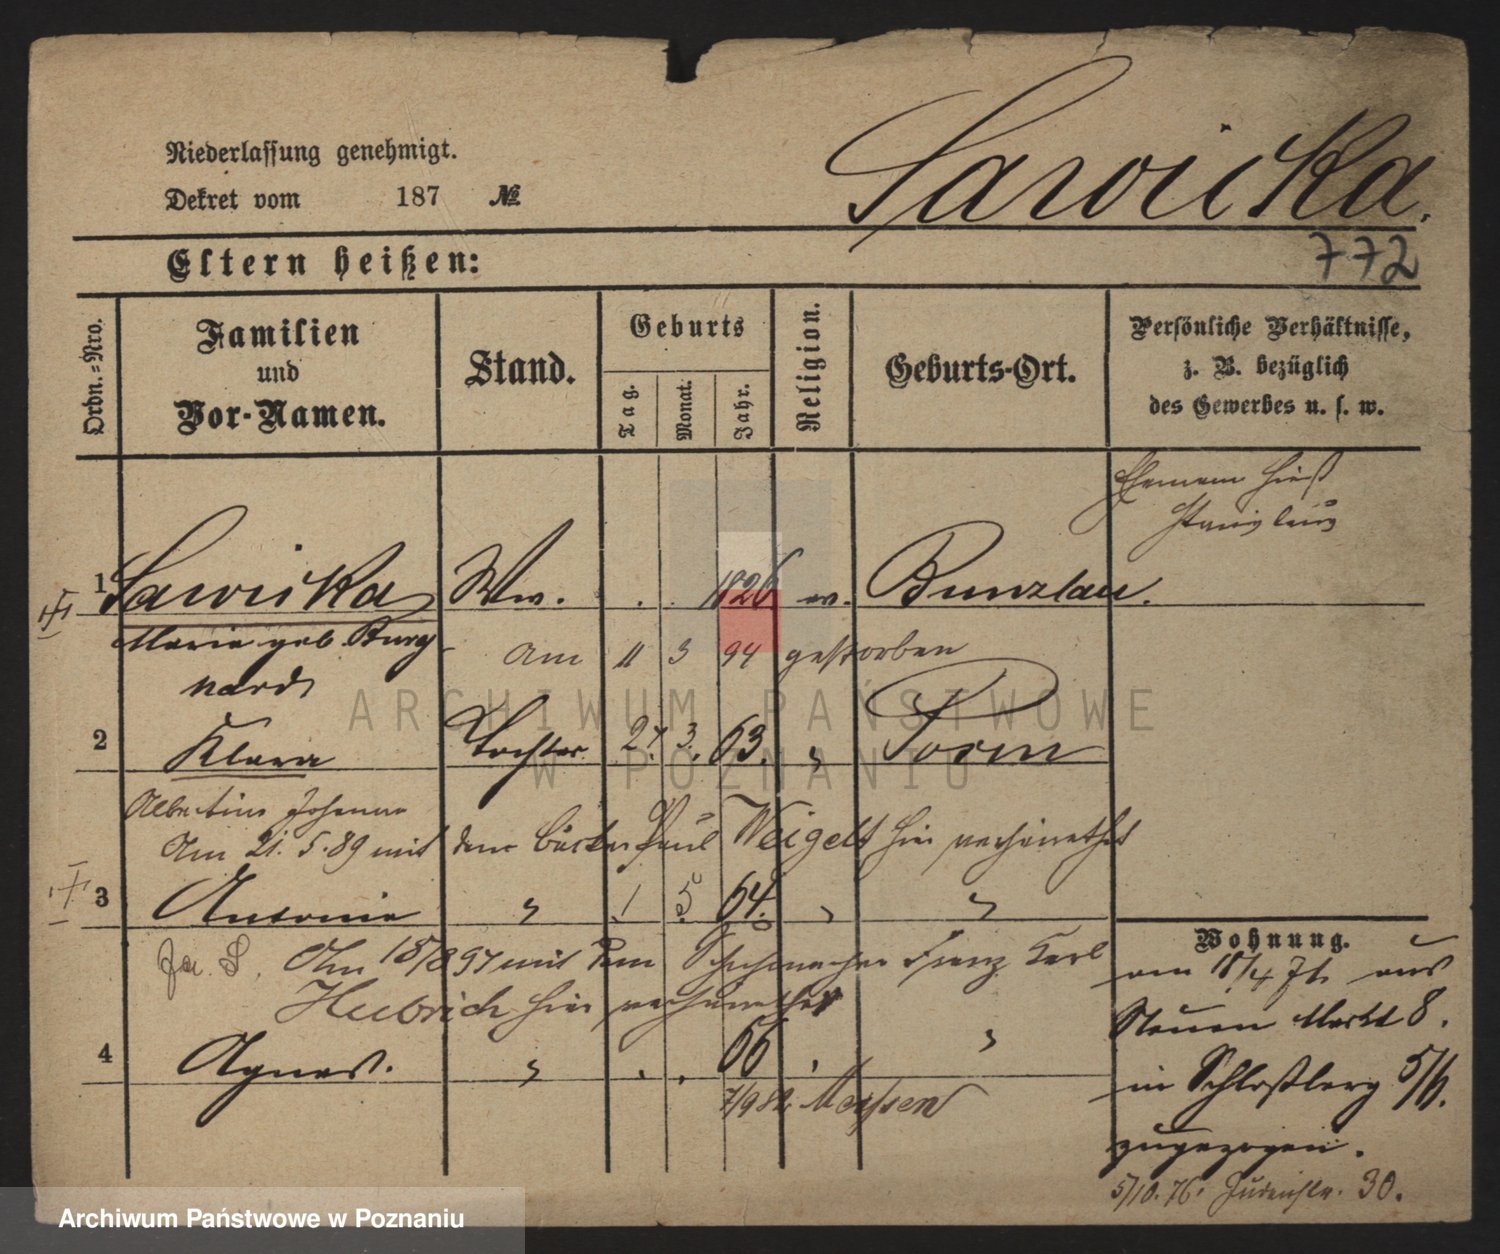 Niederlassung genehmigt.
Dekret vom 187 №
Sawicka.
772
Eltern heißen:
Ordn.=Nro.
Familien
und
Vor-Namen.
Stand.
Geburts
Tag.
Monat.
Jahr.
Religion.
Geburts-Ort.
Persönliche Verhältnisse,
z. B. bezüglich
des Gewerbes u. s. w.
Ehemann hieß
Stanislaus
1 Sawicka Ww. . . 1826 Bunzlau.
Marie geb. Burg
hardt
am 11 3 94 gestorben
2 Klara Tochter 27. 3. 63. " Posen
Albertine Johanna
Am 21. 5. 89 mit dem Bäcker Paul Weigelt hier verheirathet
3 Antonie " 1 5 64. " "
Am 18/8 97 mit dem Schuhmacher Franz Karl
Hubrich hier verheirathet
4 Agnes. " . . 66 " "
7/9 82. Meissen
Wohnung.
am 18/4 71. aus
Neuen Markt 8.
in Schloßberg 5/6.
zugezogen.
5/10. 76. Judenstr. 30.
ARCHIWUM PAŃSTWOWE
W POZNANIU
Archiwum Państwowe w Poznaniu